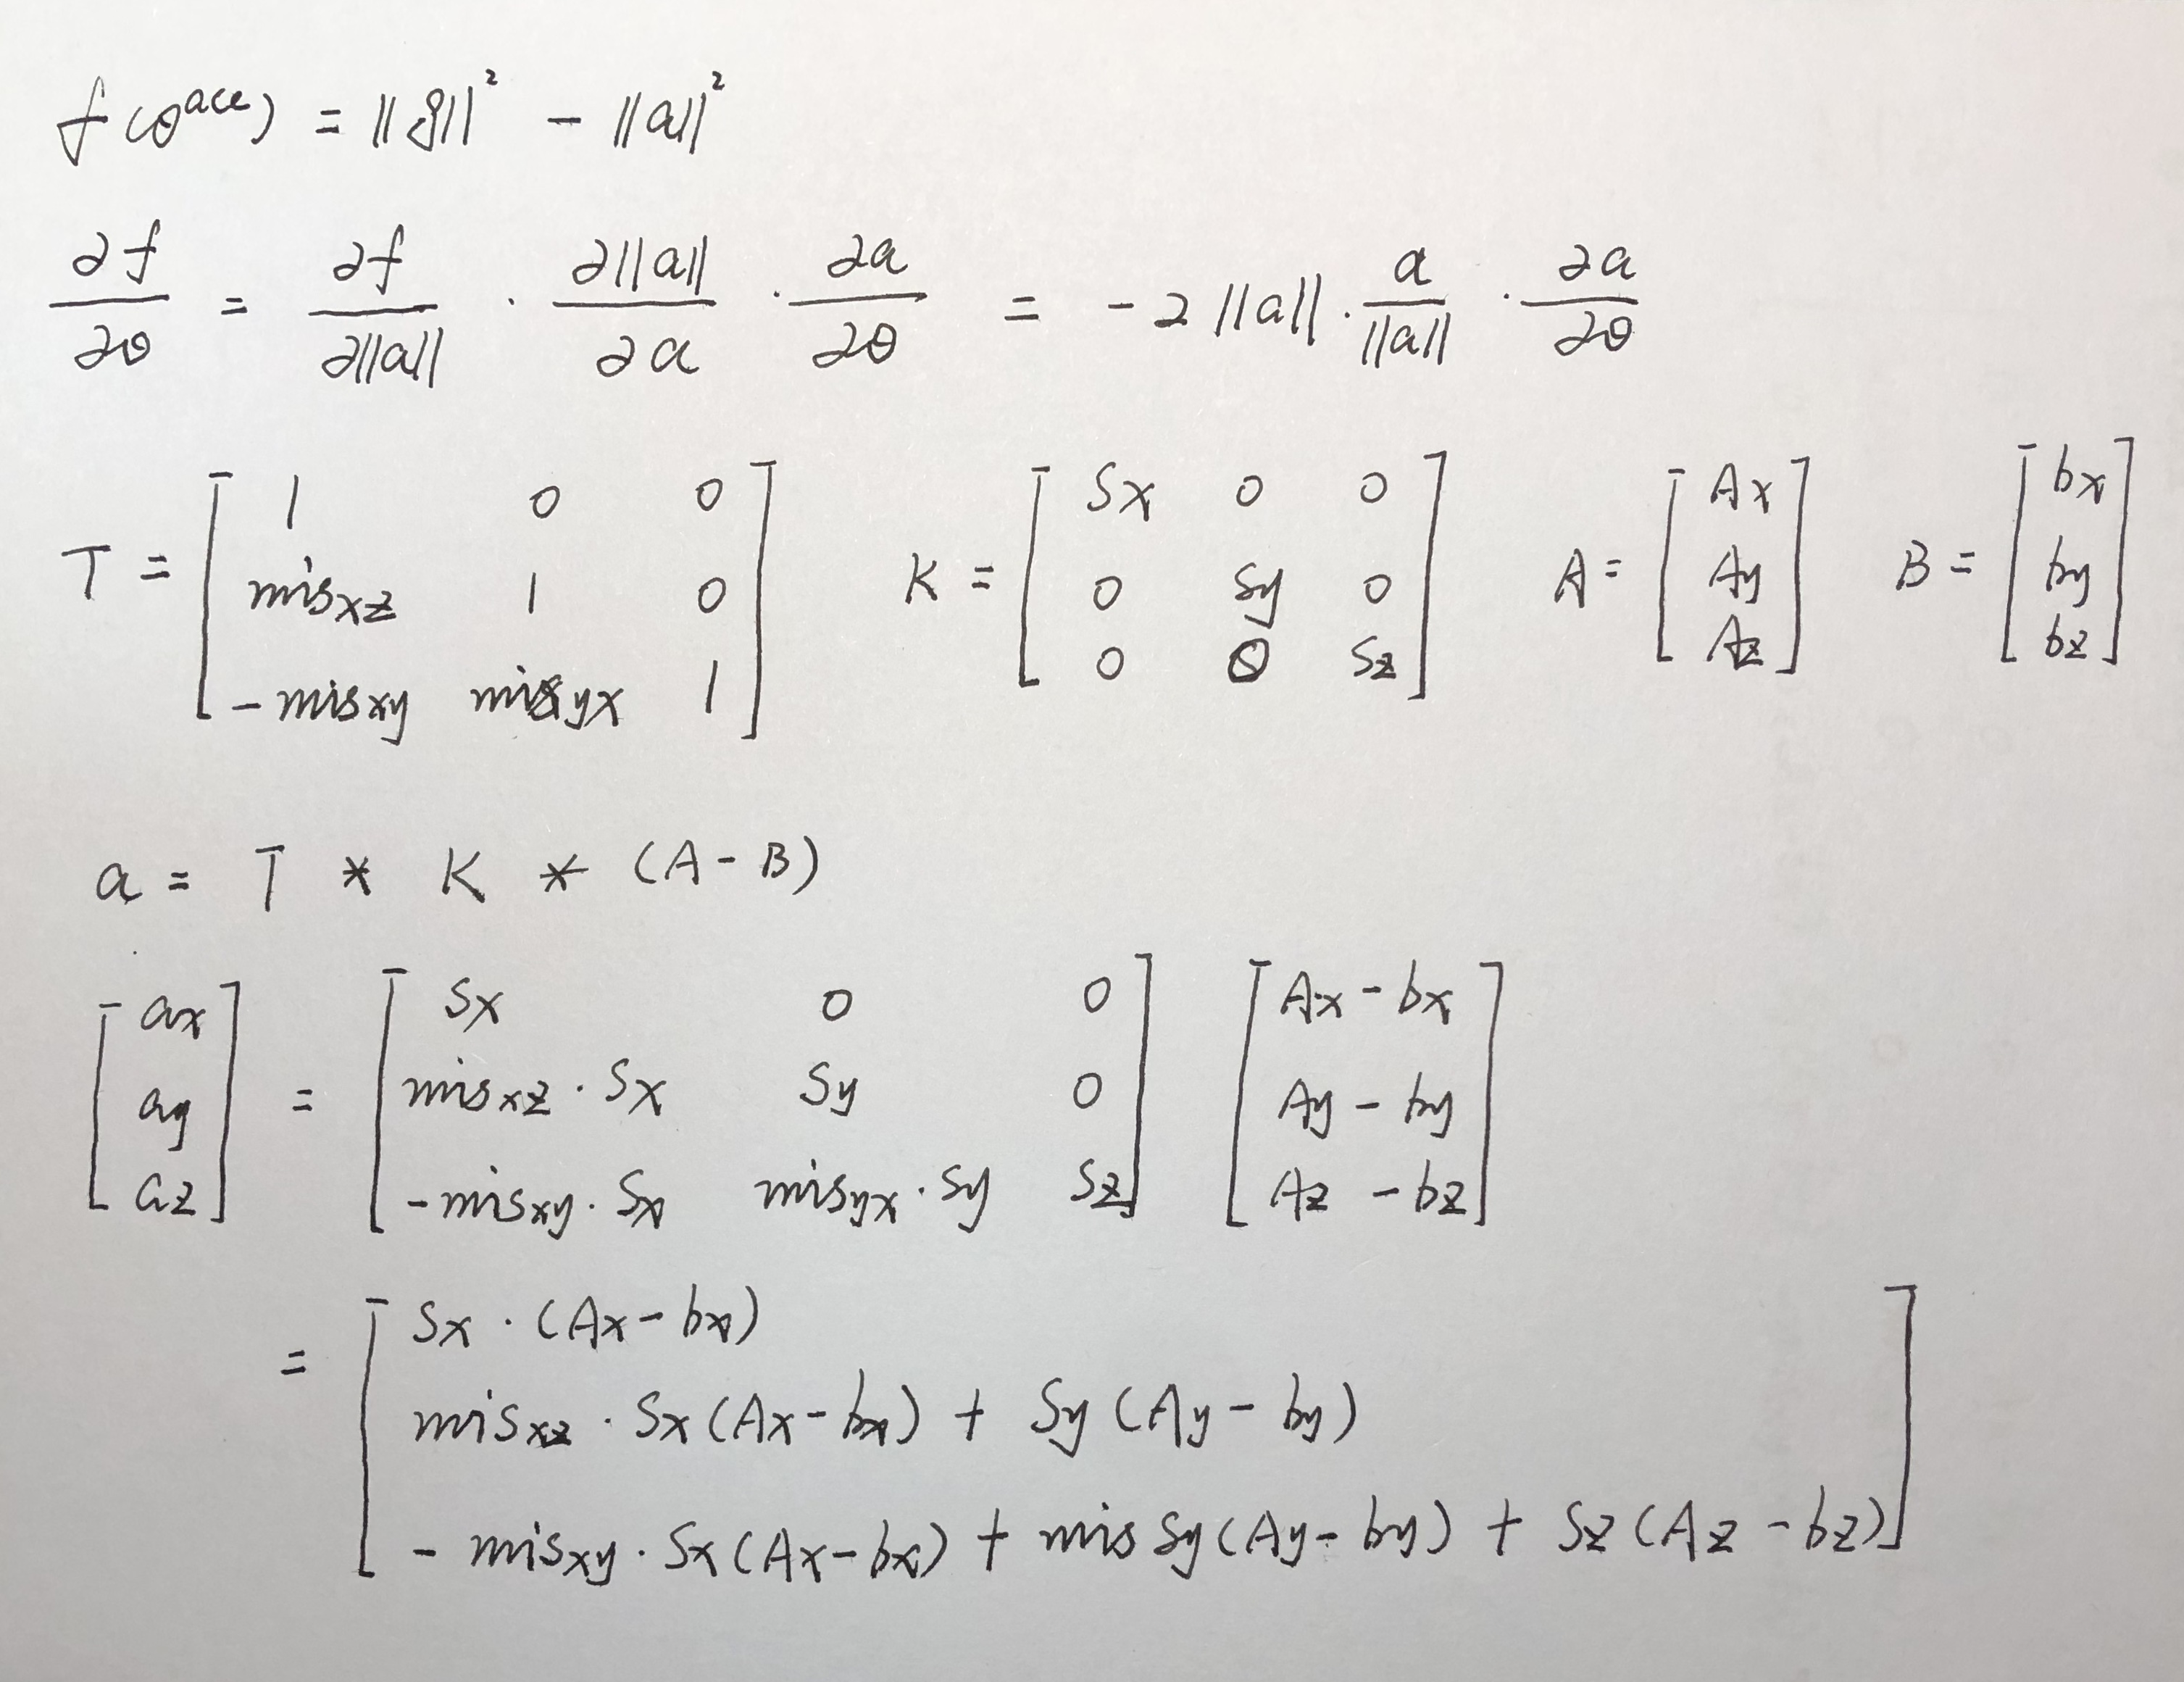 f(θ^acc) = ||g||² - ||a||²
∂f/∂θ = ∂f/∂||a|| · ∂||a||/∂a · ∂a/∂θ = -2||a|| · a/||a|| · ∂a/∂θ
T = [ 1 0 0 ; mis_xz 1 0 ; -mis_xy mis_yx 1 ] K = [ Sx 0 0 ; 0 Sy 0 ; 0 0 Sz ] A = [ Ax ; Ay ; Az ] B = [ bx ; by ; bz ]
a = T * K * (A - B)
[ ax ; ay ; az ] = [ Sx 0 0 ; mis_xz · Sx Sy 0 ; -mis_xy · Sx mis_yx · Sy Sz ] [ Ax - bx ; Ay - by ; Az - bz ]
= [ Sx · (Ax - bx) ; mis_xz · Sx(Ax - bx) + Sy(Ay - by) ; - mis_xy · Sx(Ax - bx) + mis Sy(Ay - by) + Sz(Az - bz) ]